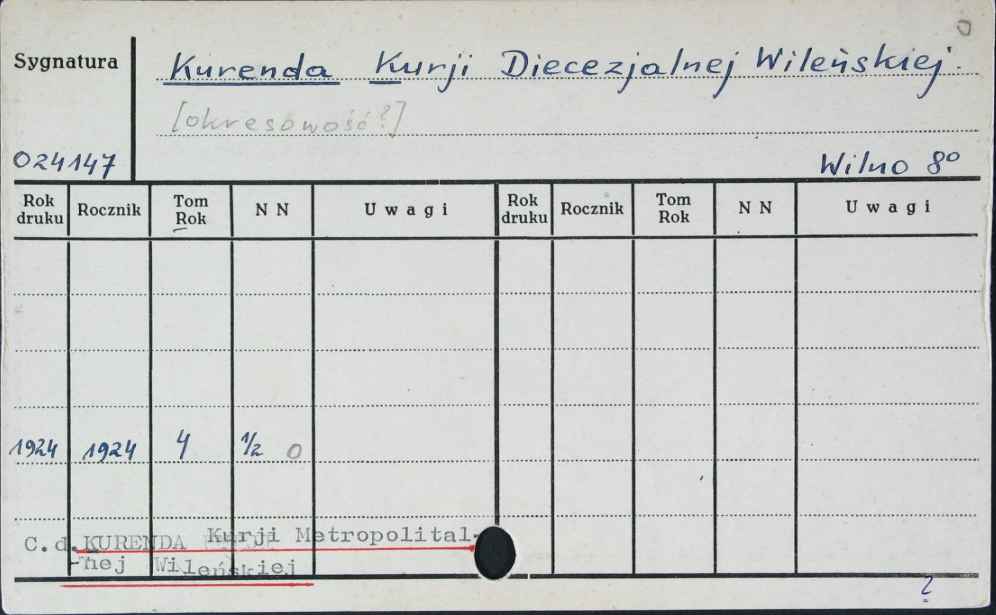 0
Sygnatura
Kurenda Kurji Diecezjalnej Wileńskiej.
[okresowość?]
024147
Wilno 8°
Rok druku Rocznik Tom Rok N N Uwagi Rok druku Rocznik Tom Rok N N Uwagi
1924 1924 4 1/2 0
C.d. KURENDA Kurji Metropolital-
-nej Wileńskiej
2